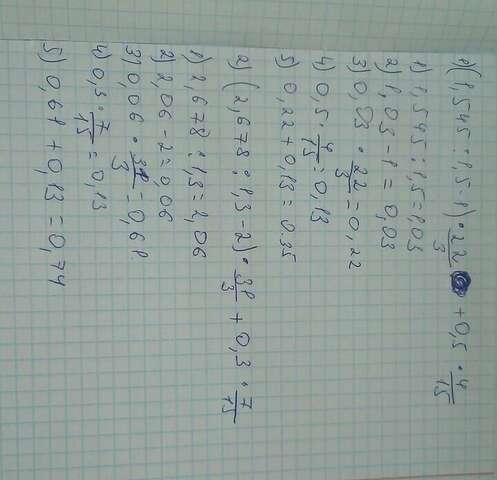 1) (1,545 : 1,5 - 1) · 22/3 + 0,5 · 4/15
1) 1,545 : 1,5 = 1,03
2) 1,03 - 1 = 0,03
3) 0,03 · 22/3 = 0,22
4) 0,5 · 4/15 = 0,13
5) 0,22 + 0,13 = 0.35
2) (2,678 : 1,3 - 2) · 31/3 + 0,3 · 7/15
1) 2,678 : 1,3 = 2,06
2) 2,06 - 2 = 0,06
3) 0,06 · 31/3 = 0,61
4) 0,3 · 7/15 = 0,13
5) 0,61 + 0,13 = 0,74